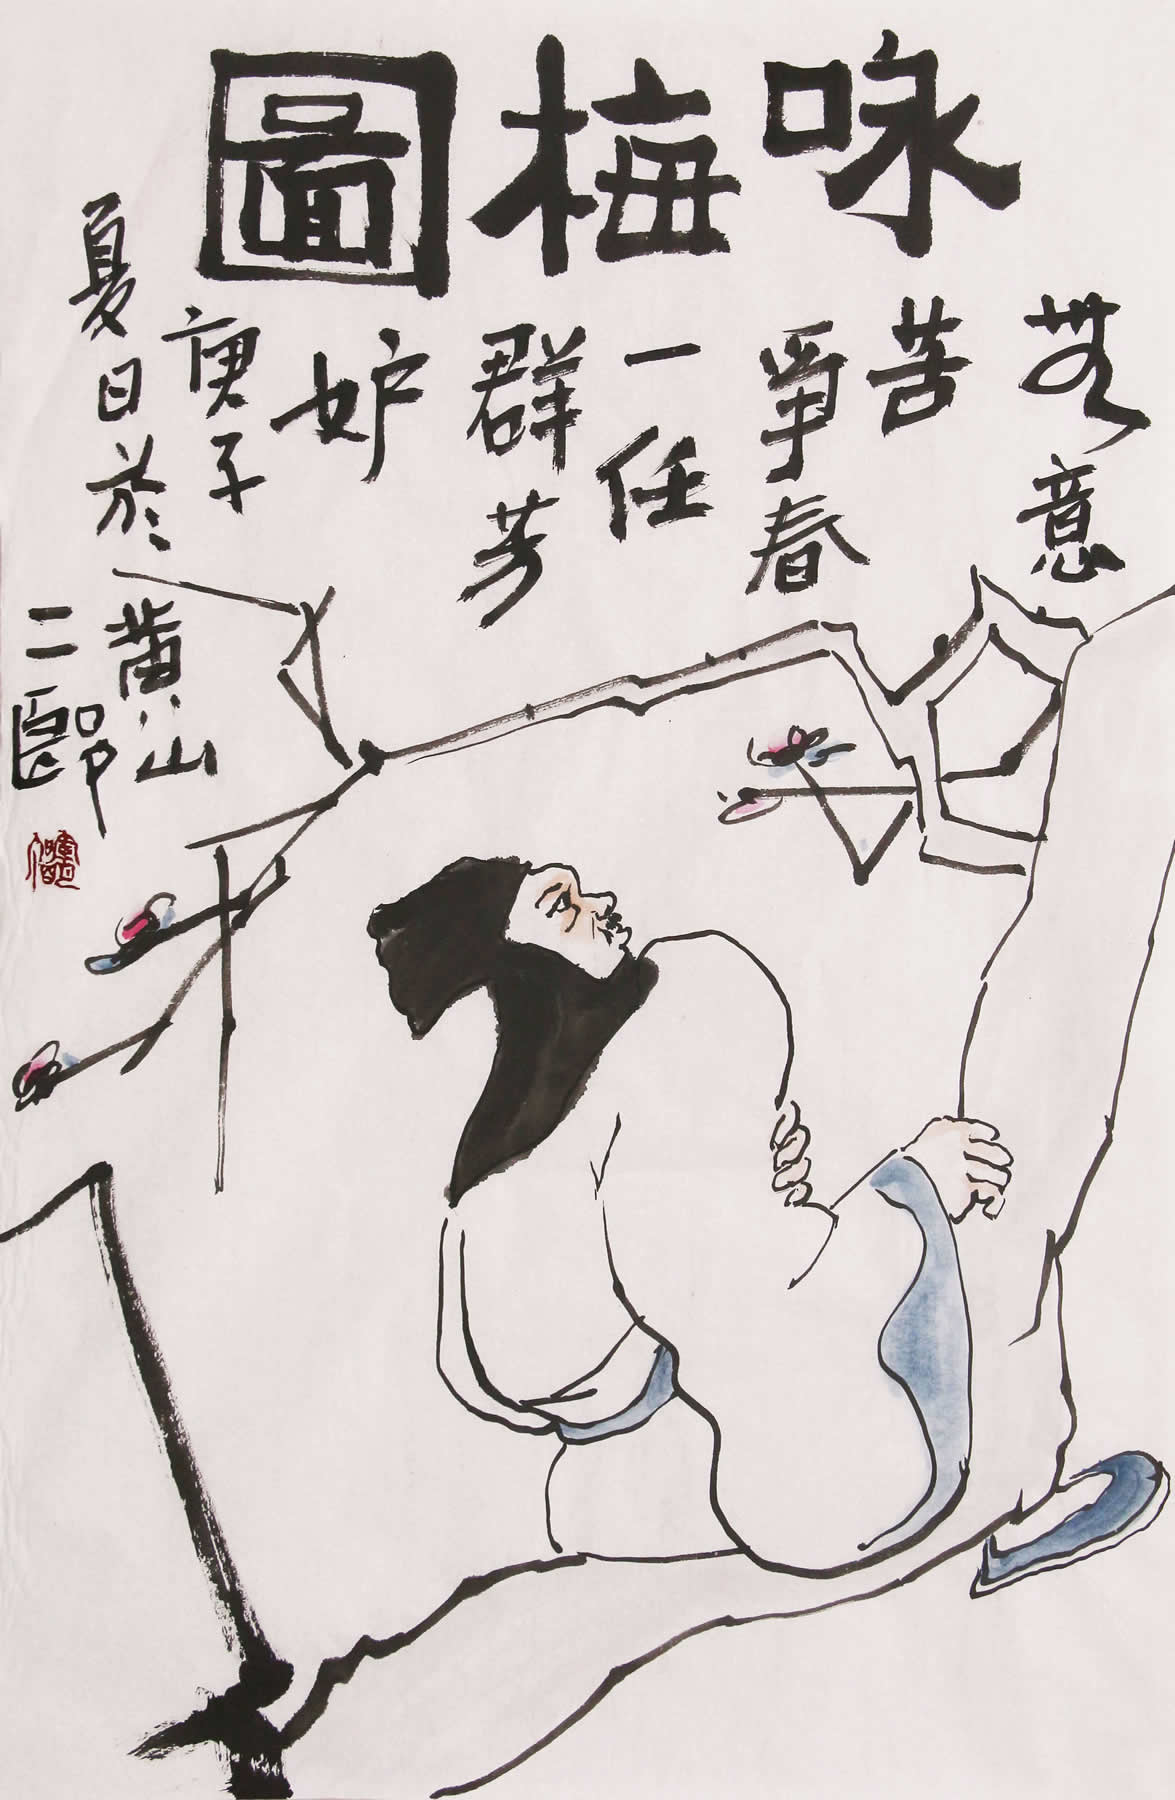 咏梅圖
無意
苦
爭春
一任
群芳
妒
庚子
夏日於黃山
二